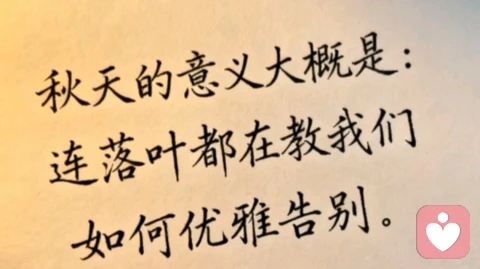 秋天的意义大概是：
连落叶都在教我们
如何优雅告别。